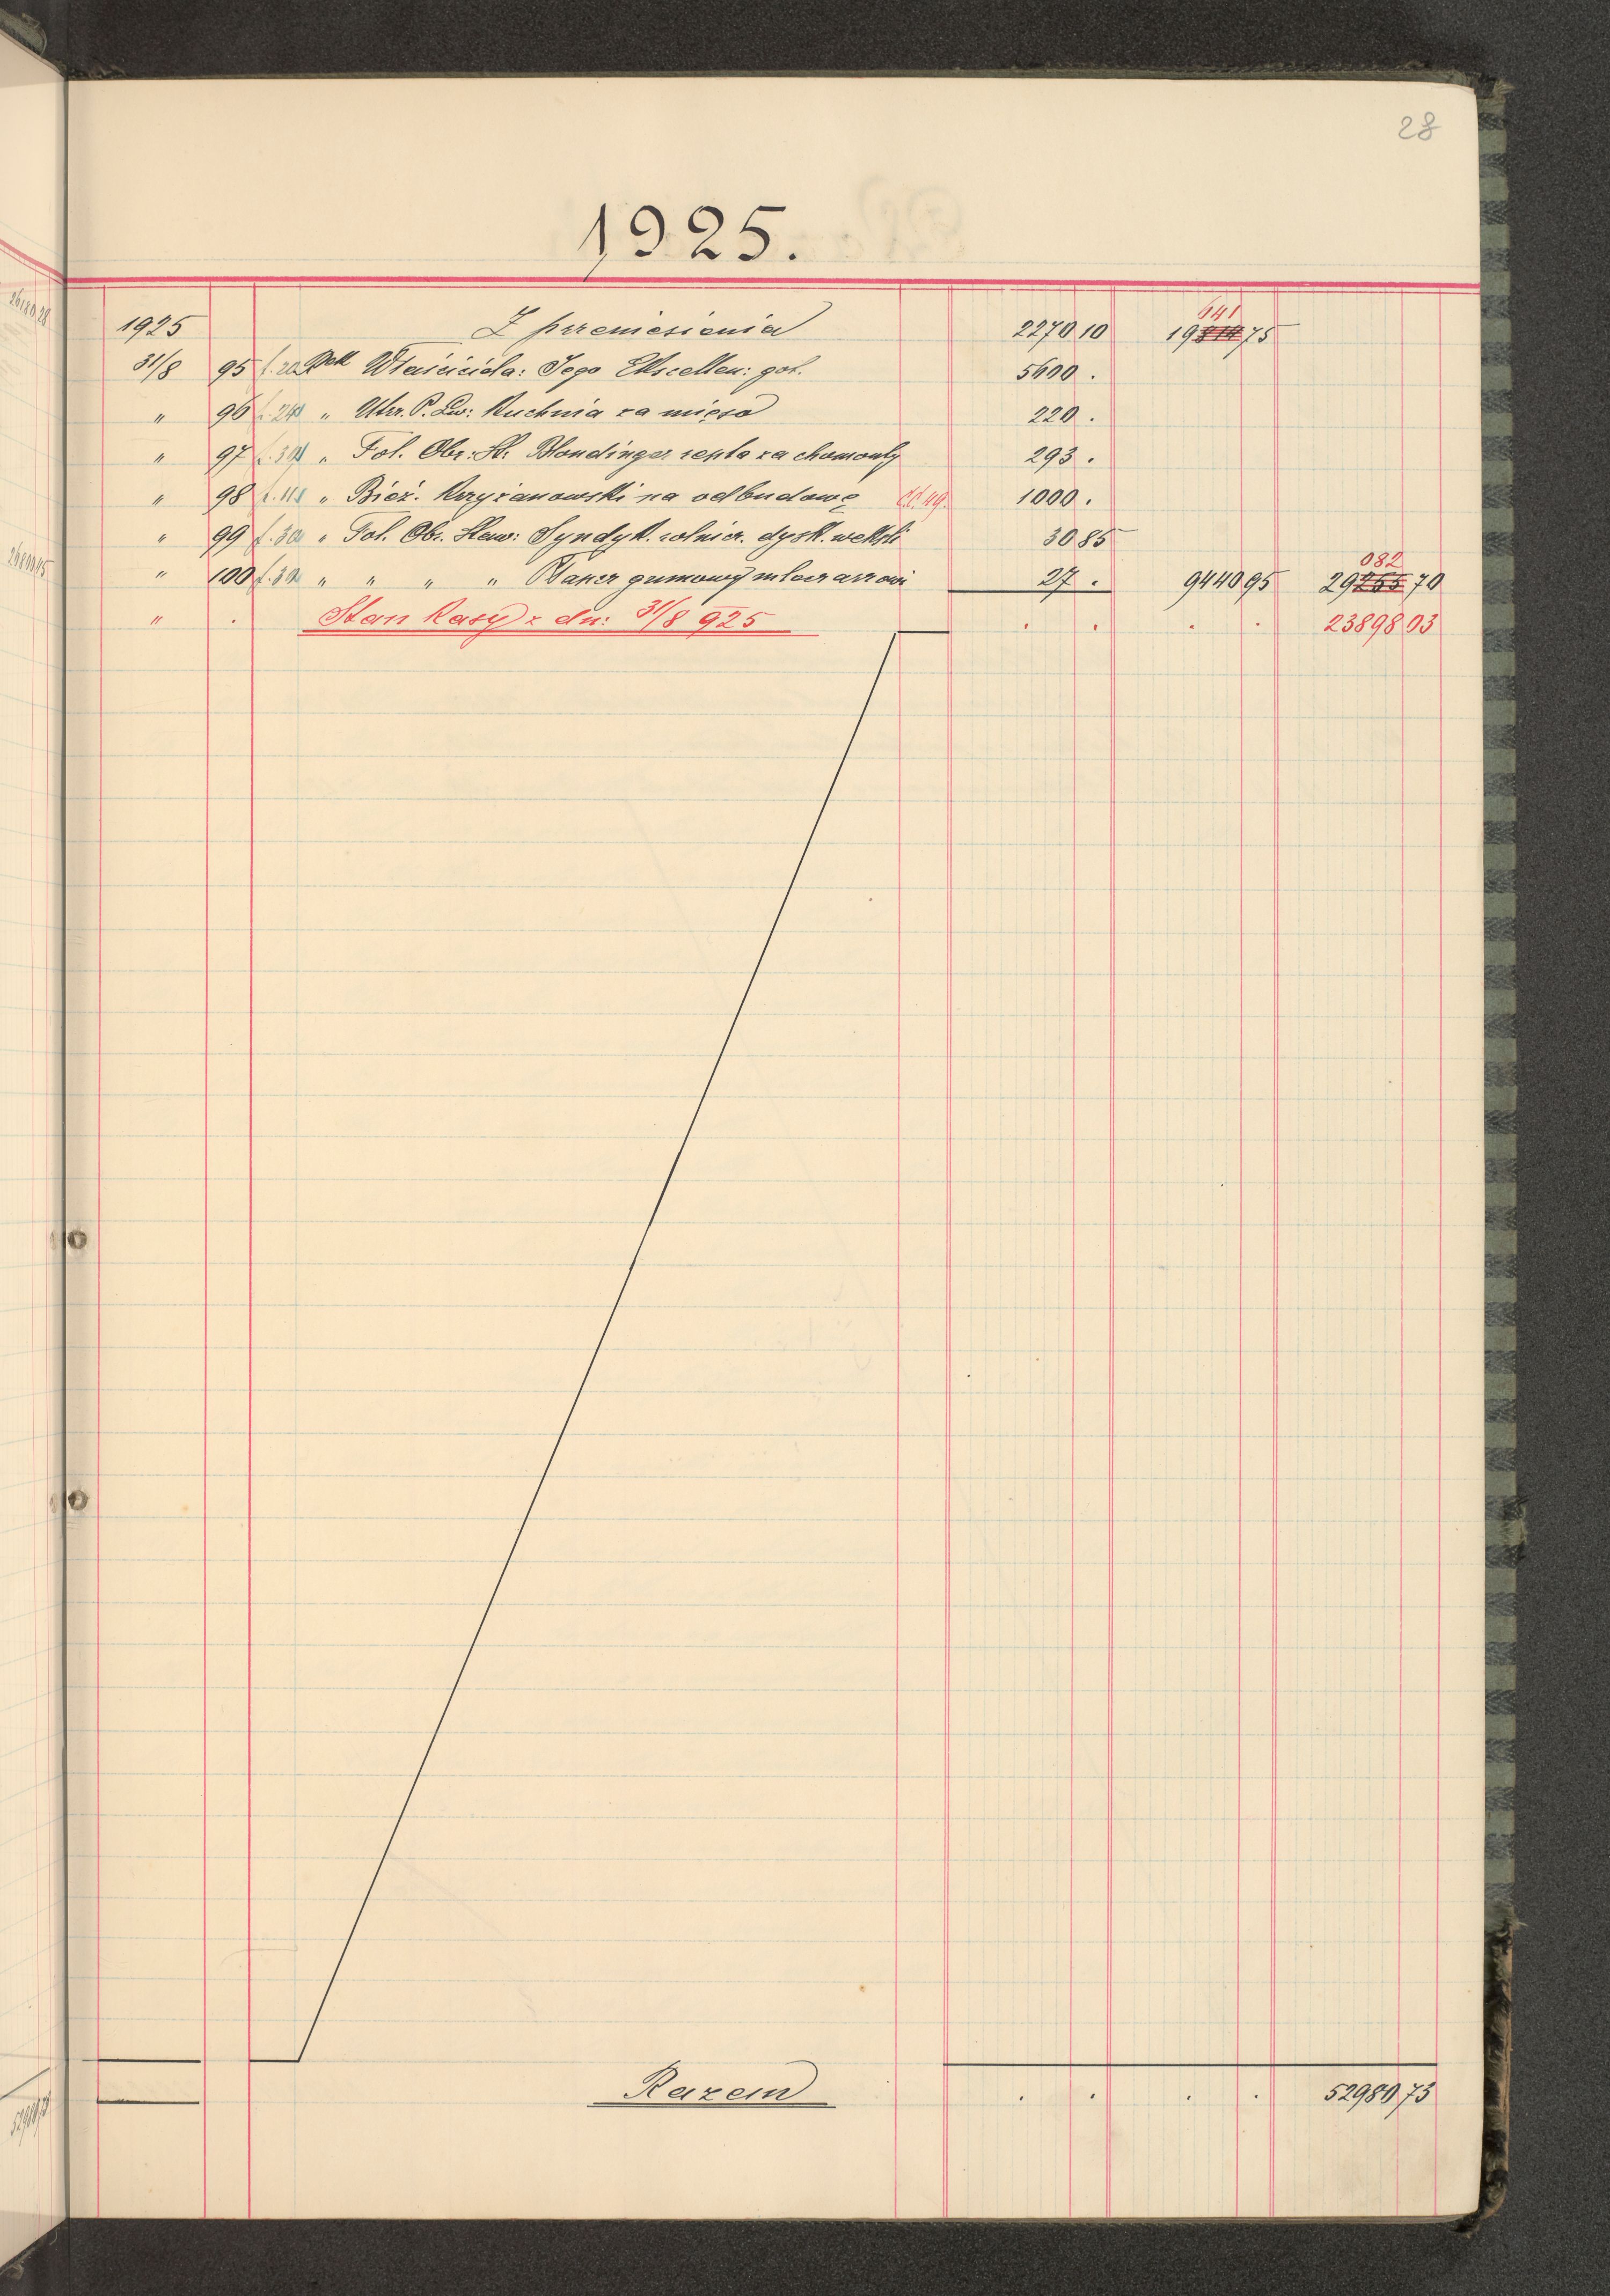 28
1925.
1925 Z przeniesienia 2270 10 19814 75 641
31/8 95 f. 20 Rek Właściciela: Jego Ekscellen: got. 5600 .
" 96 f. 24 " Utrz. P. Dw: Kuchnia za mięso 220 .
" 97 f. 30 " Fol. Obr: St. Blondinger reszta za chomonty 293 .
" 98 f. 11 " Bież. Krzyżanowski na odbudowę 49. 1000 .
" 99 f. 30 " Fol. Obr. Staw: Syndyk. rolnicz. dysk. weksli 30 85
" 100 f. 30 " " " " gumowy młocarzowi 27 . 9440 95 29255 70 082
" . Stan Kasy z dn: 31/8 925 . . . . 23898 03
Razem . . . . 52980 73